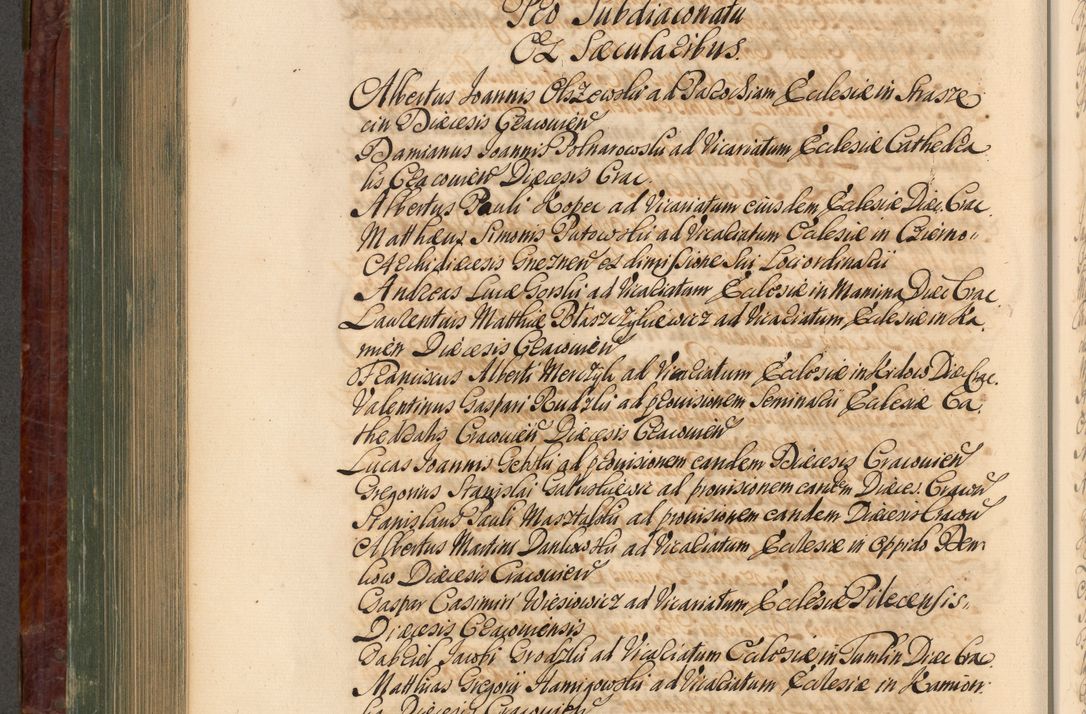 Pro Subdiaconatu
Ex Sæcularibus.
Albertus Joannis Olszowski ad Parochiam Ecclesiæ in Strasze
cin Diæcesis Cracovien
Damianus Joannis Polnarowski ad Vicariatum Ecclesiæ Cathedra
lis Cracovien Diæcesis Crac.
Albertus Pauli Kopec ad Vicariatum eiusdem Ecclesiæ Diæc. Crac.
Matthæus Simonis Putowski ad Vicariatum Ecclesiæ in Czierno"
Archidiæcesis Gneznen ex dimissione sui Loci ordinarii
Andreas Lucæ Gorski ad Vicariatum Ecclesiæ in Mamina Diæc Crac.
Laurentius Matthiæ Błaszczykiewicz ad Vicariatum Ecclesiæ in Ka,
mien Diæcesis Cracovien
Franciscus Alberti Menczyk ad Vicariatum Ecclesiæ in Kidow Diæ Crac.
Valentinus Gaspari Rudzki ad provisionem Seminarii Ecclesiæ Ca,
thedralis Cracovien Diæcesis Cracovien
Lucas Joannis Gebski ad provisionem eandem Diæcesis Cracovien
Gregorius Stanislai ad provisionem eandem Diæces. Cracov
Stanislaus Pauli Masztalski ad provisionem eandem Diæcesis Cracov
Albertus Martini Dankowski ad Vicariatum Ecclesiæ in oppido Bem
kow Diæcesis Cracovien
Gaspar Casimiri Wiesiowicz ad Vicariatum Ecclesiæ Pilecensis.
Diæcesis Cracoviensis
Gabriel Jacobi Grodzki ad Vicariatum Ecclesiæ in Tumlin Diæc Crac.
Matthias Gregorii Hamigowski ad Vicariatum Ecclesiæ in Kamion
Diæcesis Cracovien